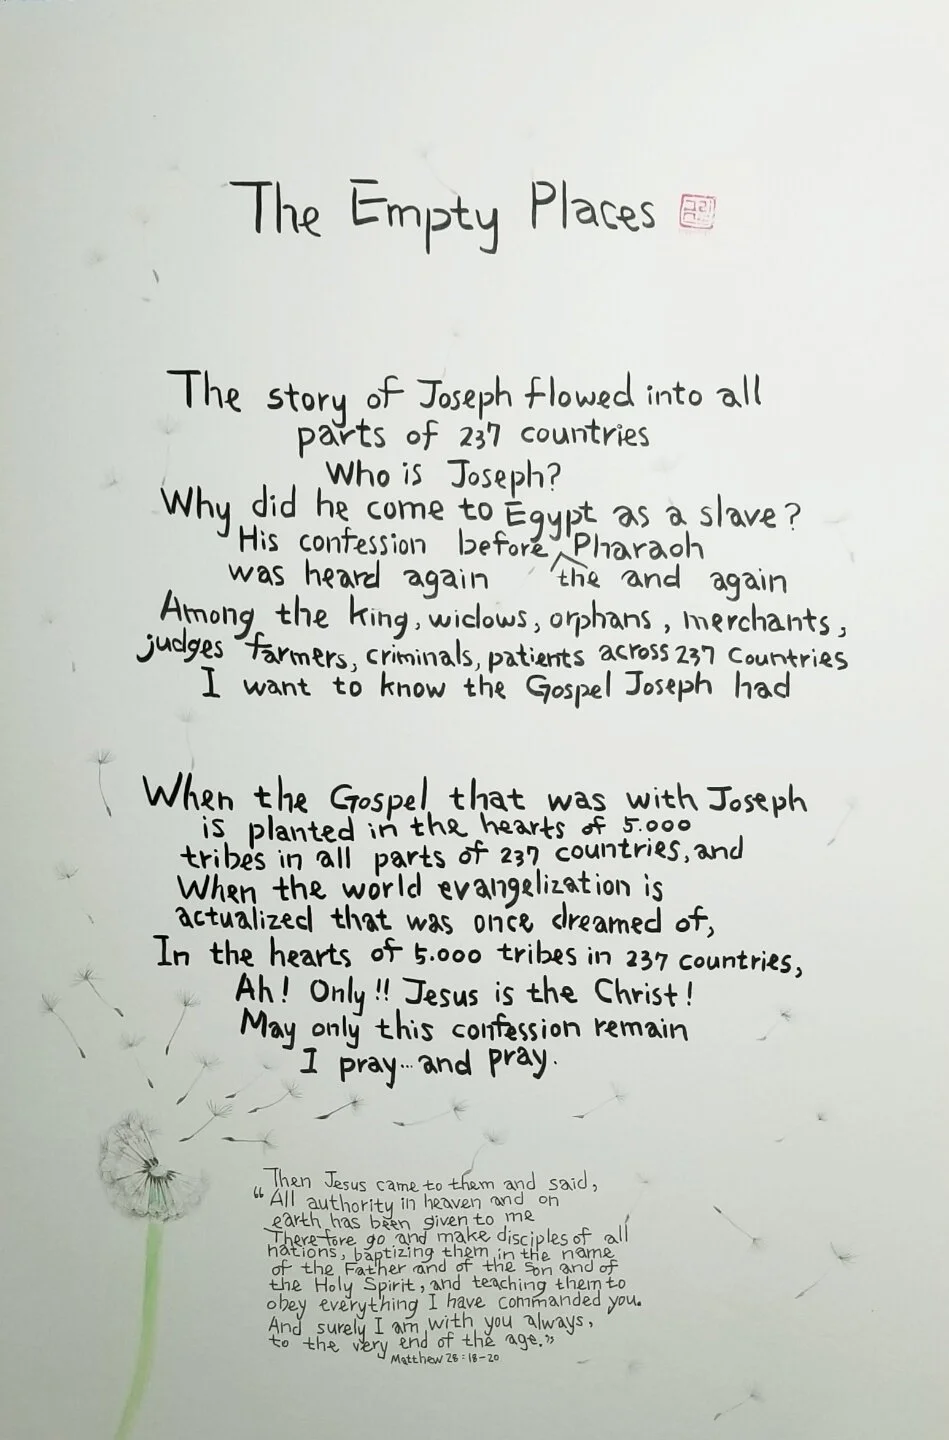 The Empty Places
The story of Joseph flowed into all
parts of 237 countries
Who is Joseph?
Why did he come to Egypt as a slave?
His confession before Pharaoh
was heard again the and again
Among the king, widows, orphans, merchants,
judges farmers, criminals, patients across 237 countries
I want to know the Gospel Joseph had
When the Gospel that was with Joseph
is planted in the hearts of 5.000
tribes in all parts of 237 countries, and
When the world evangelization is
actualized that was once dreamed of,
In the hearts of 5.000 tribes in 237 countries,
Ah! Only!! Jesus is the Christ!
May only this confession remain
I pray... and pray.
Then Jesus came to them and said,
“All authority in heaven and on
earth has been given to me
Therefore go and make disciples of all
nations, baptizing them in the name
of the Father and of the Son and of
the Holy Spirit, and teaching them to
obey everything I have commanded you.
And surely I am with you always,
to the very end of the age.”
Matthew 28:18-20